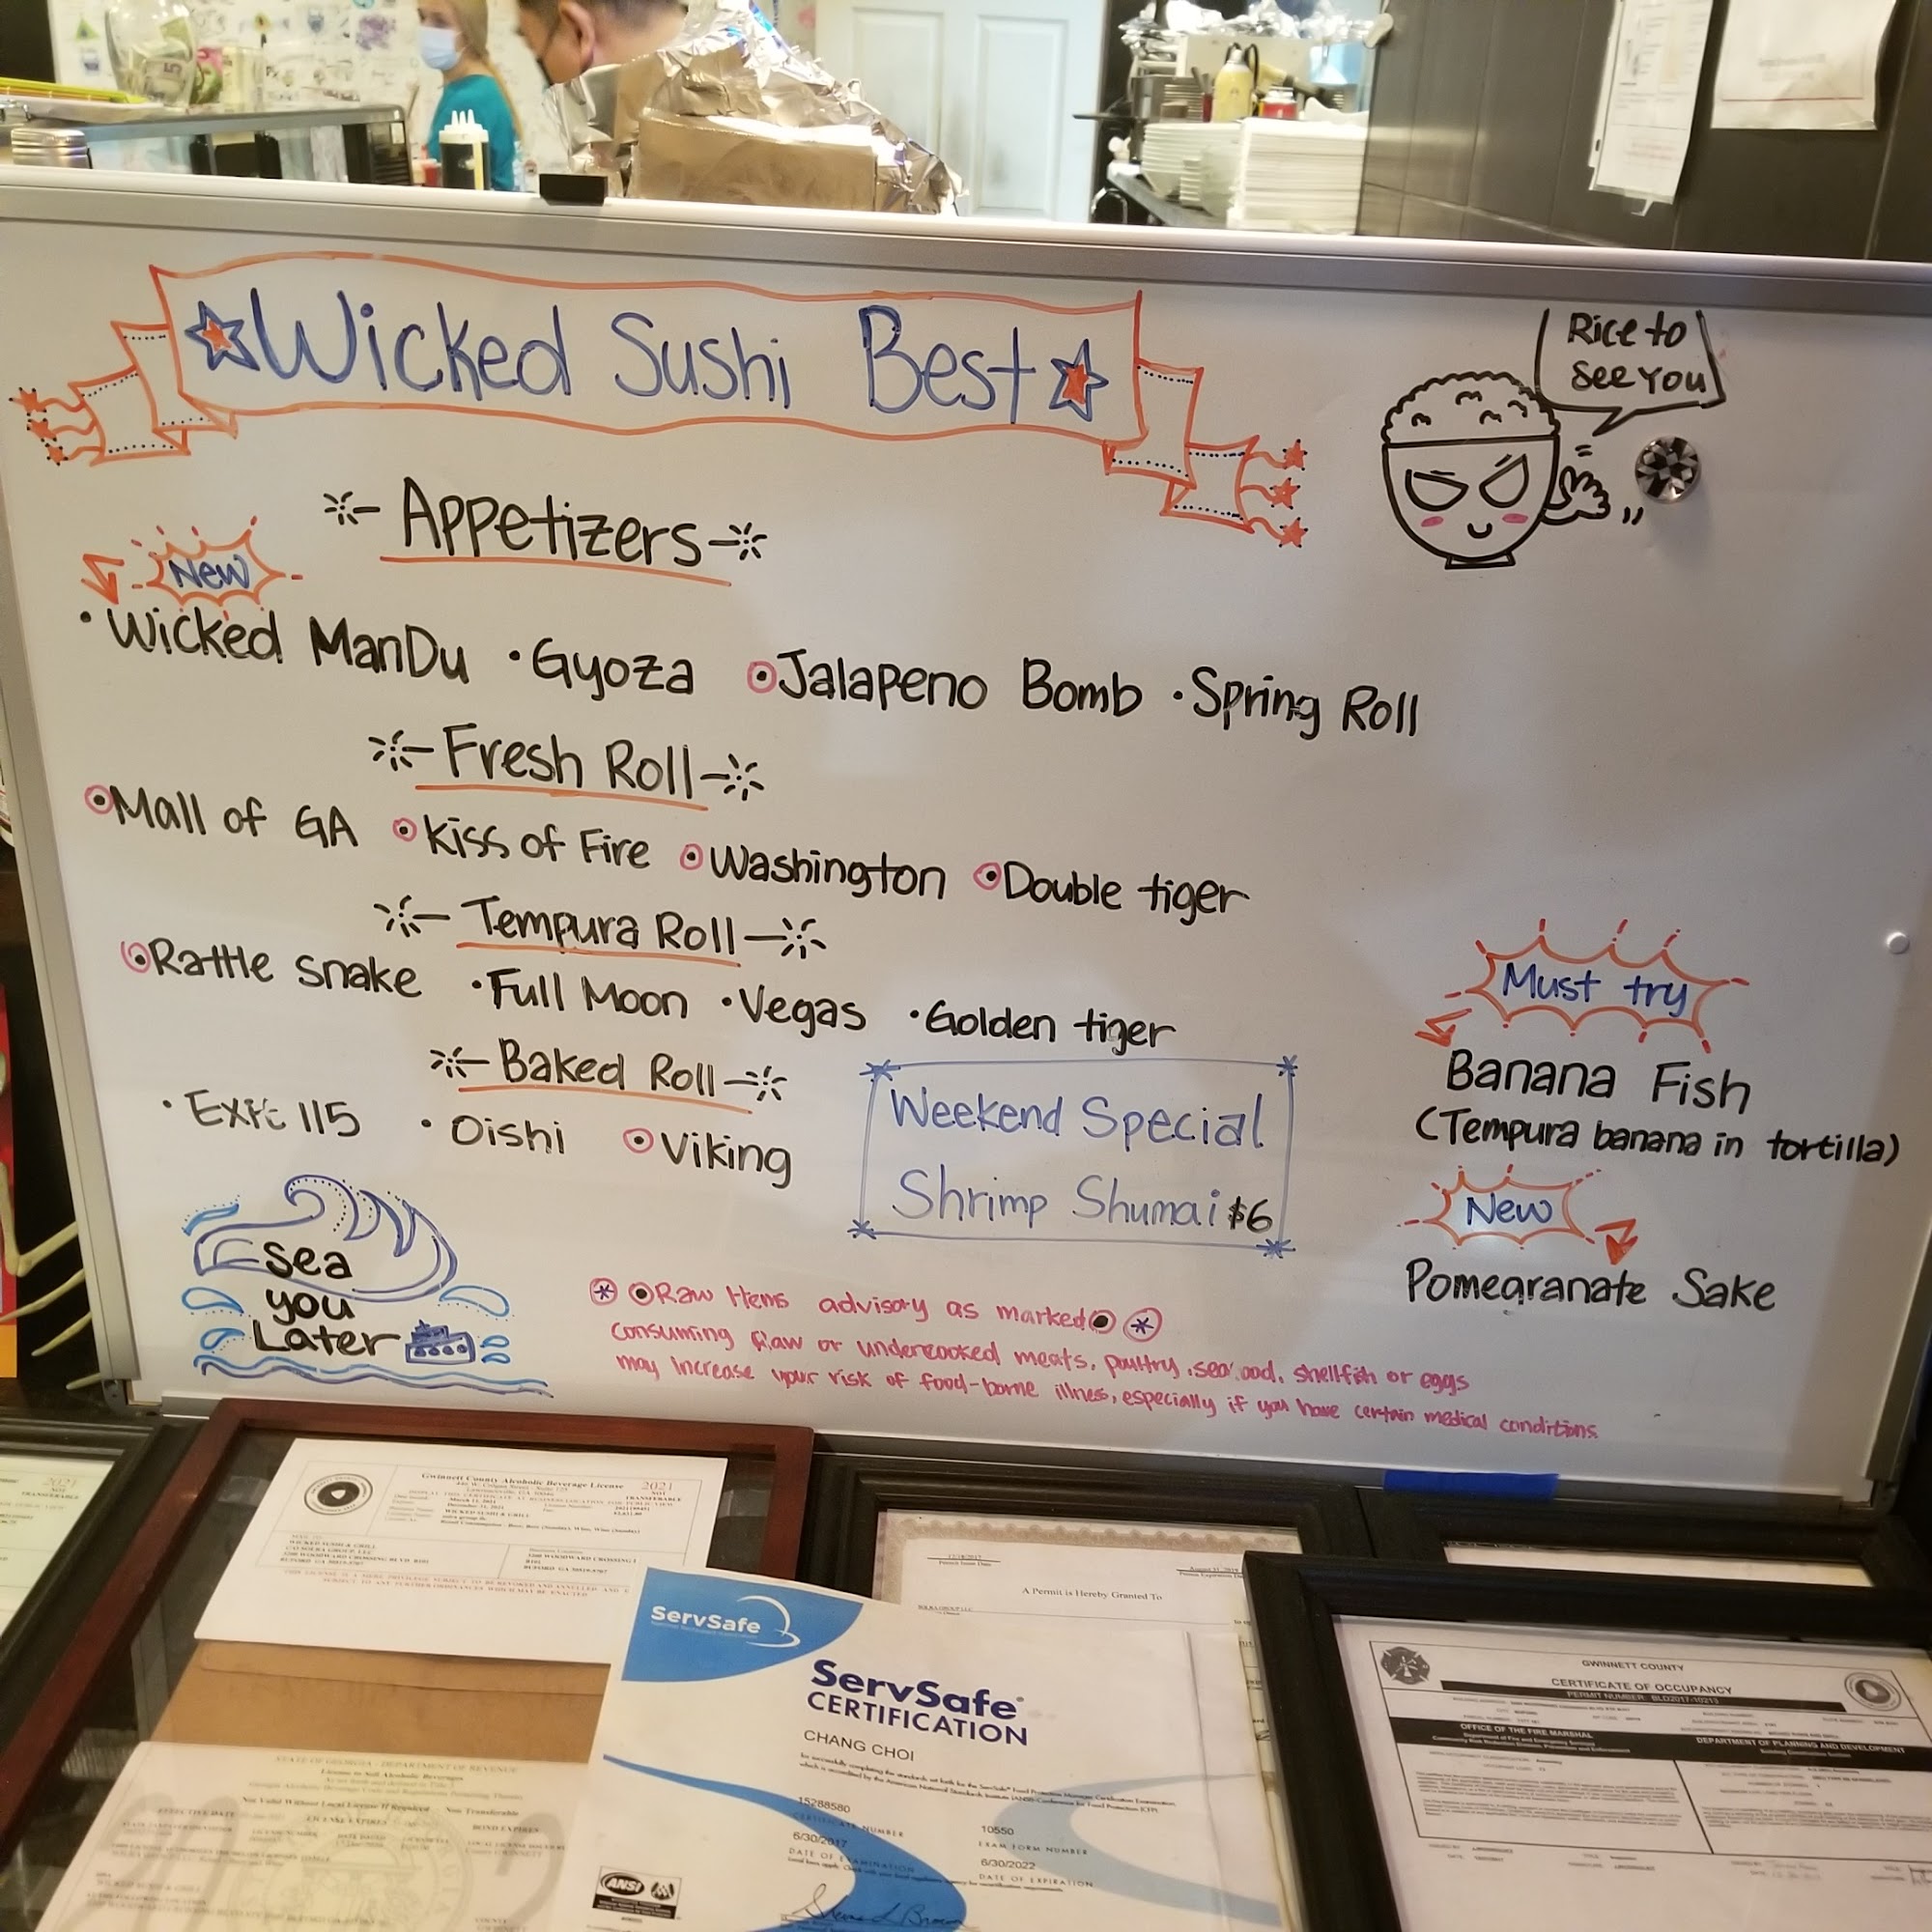 Wicked Sushi Best
Rice to
see you
Appetizers
New
• Wicked ManDu • Gyoza • Jalapeno Bomb • Spring Roll
Fresh Roll
• Mall of GA • Kiss of Fire • Washington • Double tiger
Tempura Roll
• Rattle snake • Full Moon • Vegas • Golden tiger
Baked Roll
• Exit 115 • Oishi • Viking
Weekend Special
Shrimp Shumai $6
Must try
Banana Fish
(Tempura banana in tortilla)
New
Pomegranate Sake
Sea
you
Later
* • Raw Items advisory as marked • *
consuming Raw or undercooked meats, poultry, sea ood, shellfish or eggs
may increase your risk of food-borne illness, especially if you have certain medical conditions.
Gwinnett County Alcoholic Beverage License
2021
NOT
TRANSFERABLE
WICKED SUSHI & GRILL
A Permit is Hereby Granted To
ServSafe
ServSafe®
CERTIFICATION
CHANG CHOI
15288580
CERTIFICATE NUMBER
10550
EXAM FORM NUMBER
6/30/2017
DATE OF EXAMINATION
6/30/2022
DATE OF EXPIRATION
ANSI
GWINNETT COUNTY
CERTIFICATE OF OCCUPANCY
PERMIT NUMBER: BLD2017-10213
OFFICE OF THE FIRE MARSHAL
DEPARTMENT OF PLANNING AND DEVELOPMENT
STATE OF GEORGIA - DEPARTMENT OF REVENUE
License to Sell Alcoholic Beverages
Not Valid Without Local License If Required Non Transferable
EFFECTIVE DATE